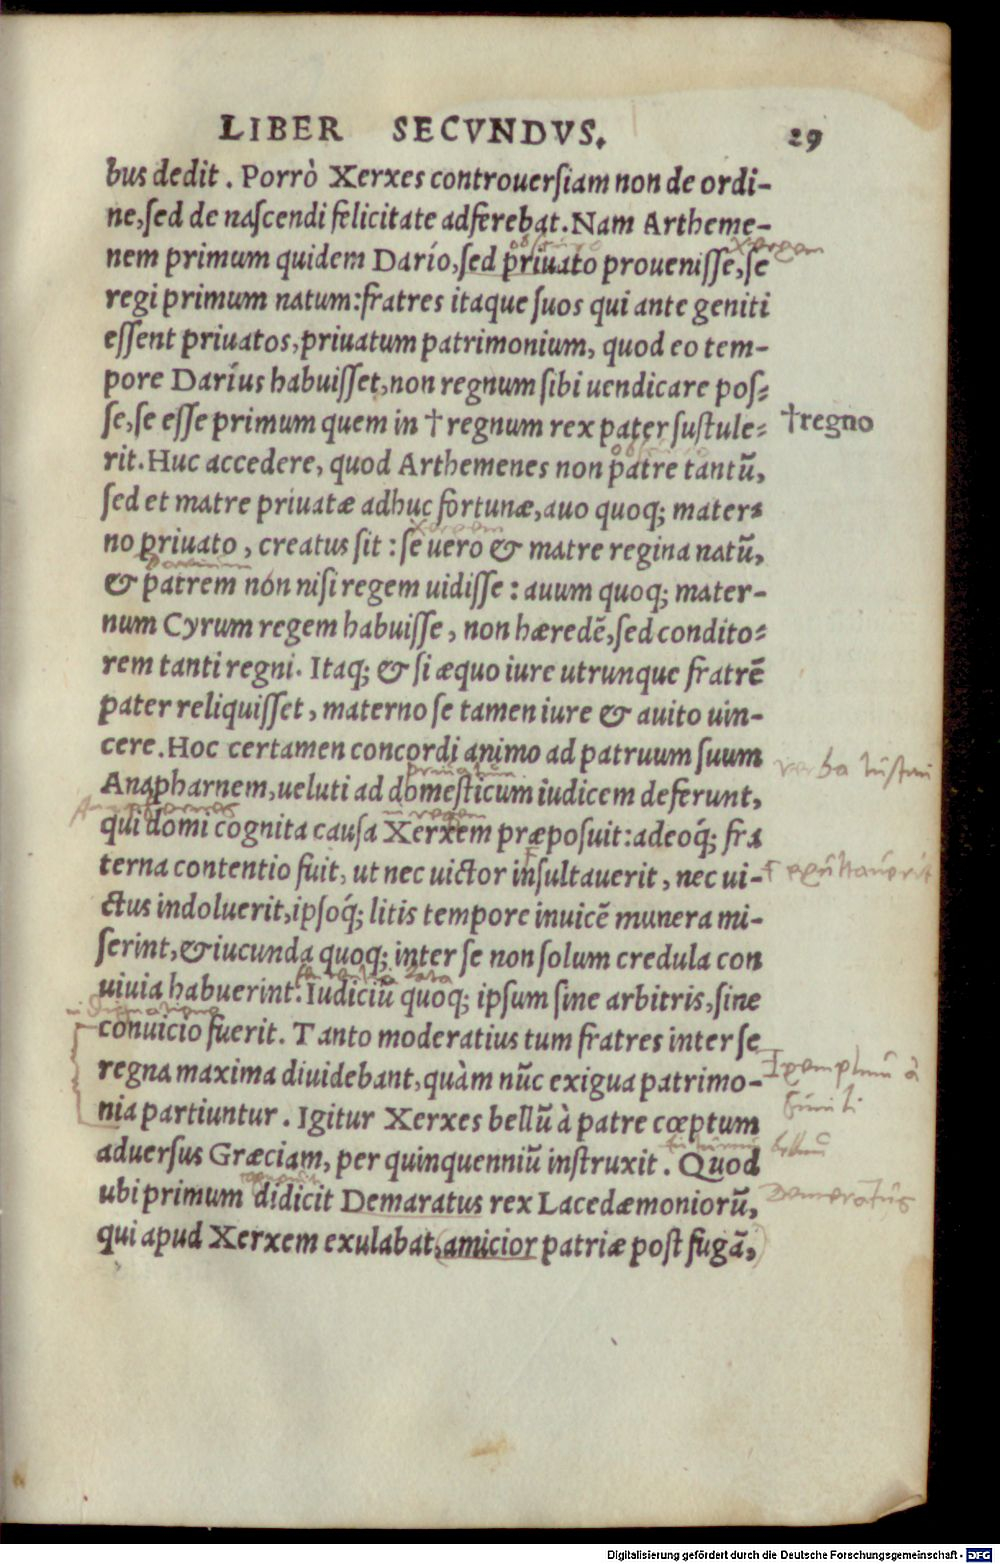 LIBER SECVNDVS. 29
bus dedit. Porrò Xerxes controuersiam non de ordi-
ne, sed de nascendi felicitate adferebat. Nam Artheme-
obscuro Xerxem
nem primum quidem Darío, sed priuato prouenisse, se
regi primum natum: fratres itaque suos qui ante geniti
essent priuatos, priuatum patrimonium, quod eo tem-
pore Daríus habuisset, non regnum sibi uendicare pos-
se, se esse primum quem in † regnum rex pater sustule- †regno
obscuro
rit. Huc accedere, quod Arthemenes non patre tantũ,
sed et matre priuatæ adhuc fortunæ, auo quoq; mater-
Xerxem
no priuato, creatus sit: se uero & matre regina natũ,
Darium
& patrem non nisi regem uidisse: auum quoq; mater-
num Cyrum regem habuisse, non hæredẽ, sed condito-
rem tanti regni. Itaq; & si æquo iure utrunque fratrẽ
pater reliquisset, materno se tamen iure & auito uin-
cere. Hoc certamen concordi animo ad patruum suum
priuatum verba
Anapharnem, ueluti ad domesticum iudicem deferunt,
in regem
qui domi cognita causa Xerxem præposuit: adeoq́; fra
terna contentio fuit, ut nec uictor insultauerit, nec ui- † exultauerit
ctus indoluerit, ipsoq́; litis tempore inuicẽ munera mi-
serint, & iucunda quoq; inter se non solum credula con
uiuia habuerint: Iudiciũ quoq; ipsum sine arbitris, sine
conuicio fuerit. Tanto moderatius tum fratres inter se
regna maxima diuidebant, quàm nũc exigua patrimo- Exemplum à
nia partiuntur. Igitur Xerxes bellũ à patre cœptum simili
aduersus Græciam, per quinquenniũ instruxit. Quod bellum
ubi primum didicit Demaratus rex Lacedæmoniorũ, Demeratus
qui apud Xerxem exulabat, amicior patriæ post fugã,
Digitalisierung gefördert durch die Deutsche Forschungsgemeinschaft - DFG